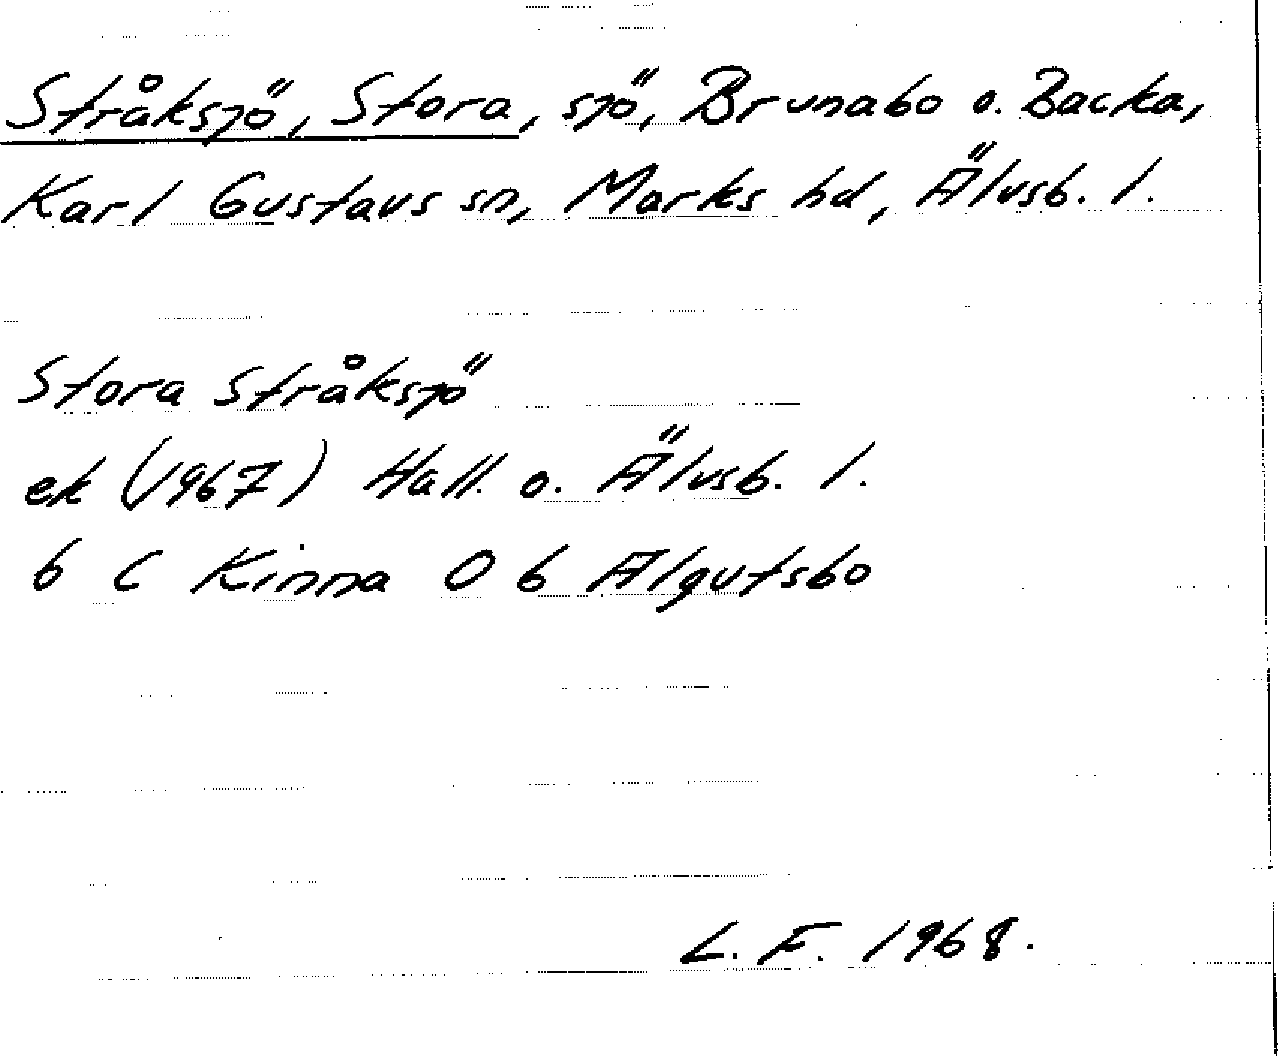 Stråksjö, Stora, sjö, Brunabo o. Backa,
Karl Gustavs sn, Marks hd, Älvsb. l.
Stora Stråksjö
ek (1967) Hall. o. Älvsb. l.
6 C Kinna O 6 Älgutsbo
L. F. 1968.